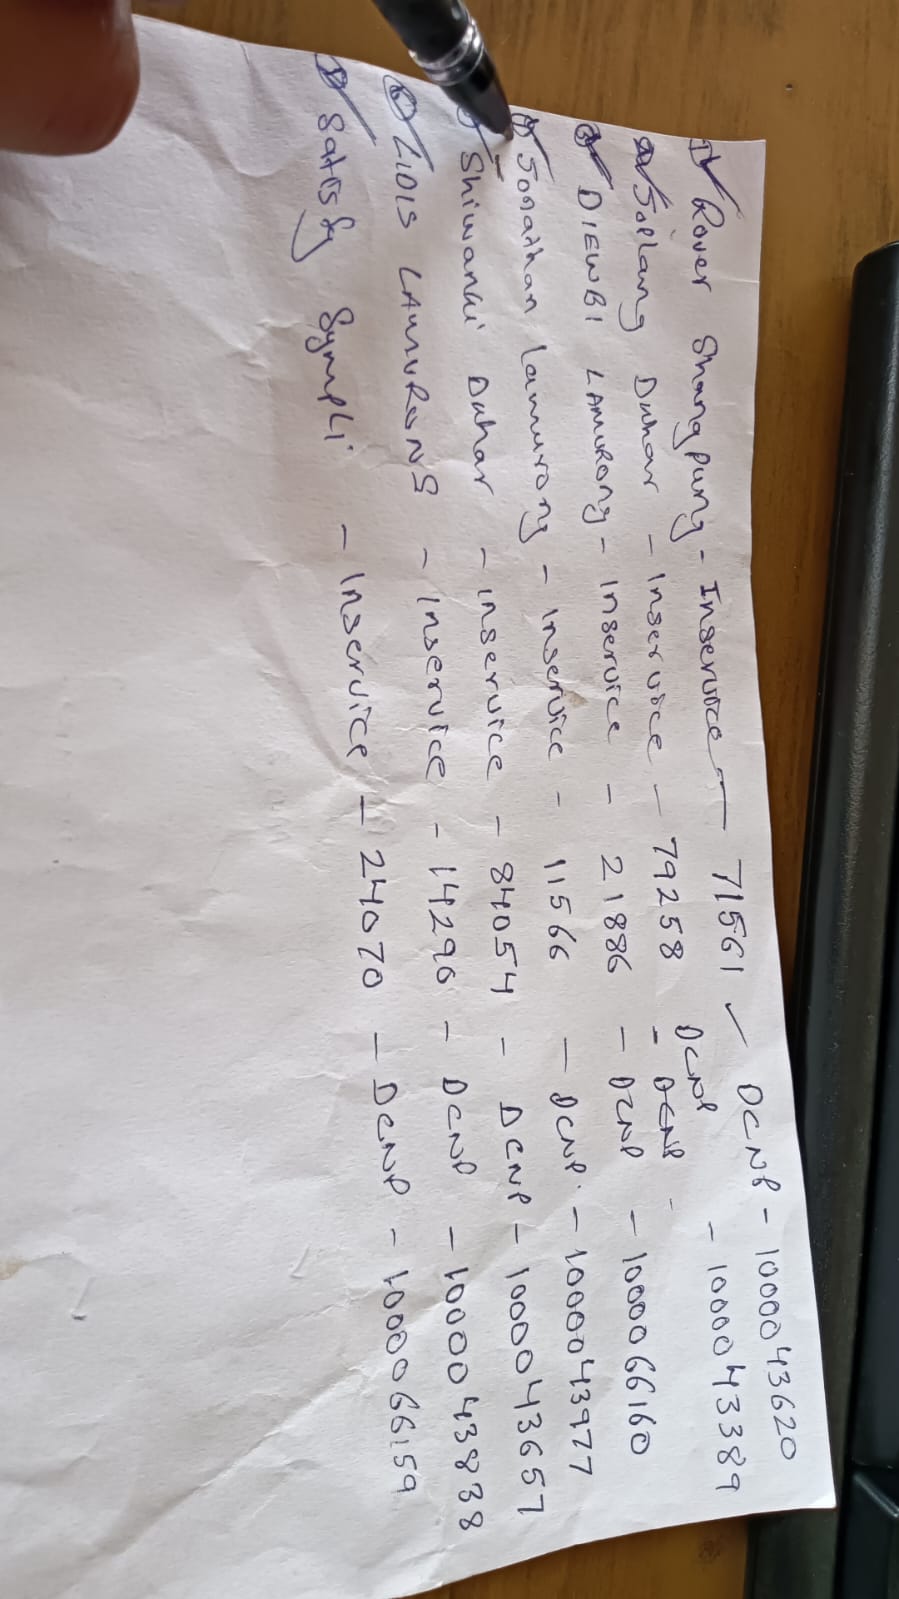 1) Rover Shangpung - Inservice - 71561 - DCNP - 1000043620
2) Joplang Duhar - Inservice - 79258 - DCNP - 1000043389
3) DIEWBI LAMURONG - Inservice - 21886 - DCNP - 1000066160
4) Jonathan Lamurong - Inservice - 11566 - DCNP - 1000043977
5) Shiwanki Duhar - inservice - 84054 - DCNP - 1000043657
6) LIOIS LAMURONG - Inservice - 14296 - DCNP - 1000043838
7) Satisfy Sympli - Inservice - 24070 - DCNP - 1000066159